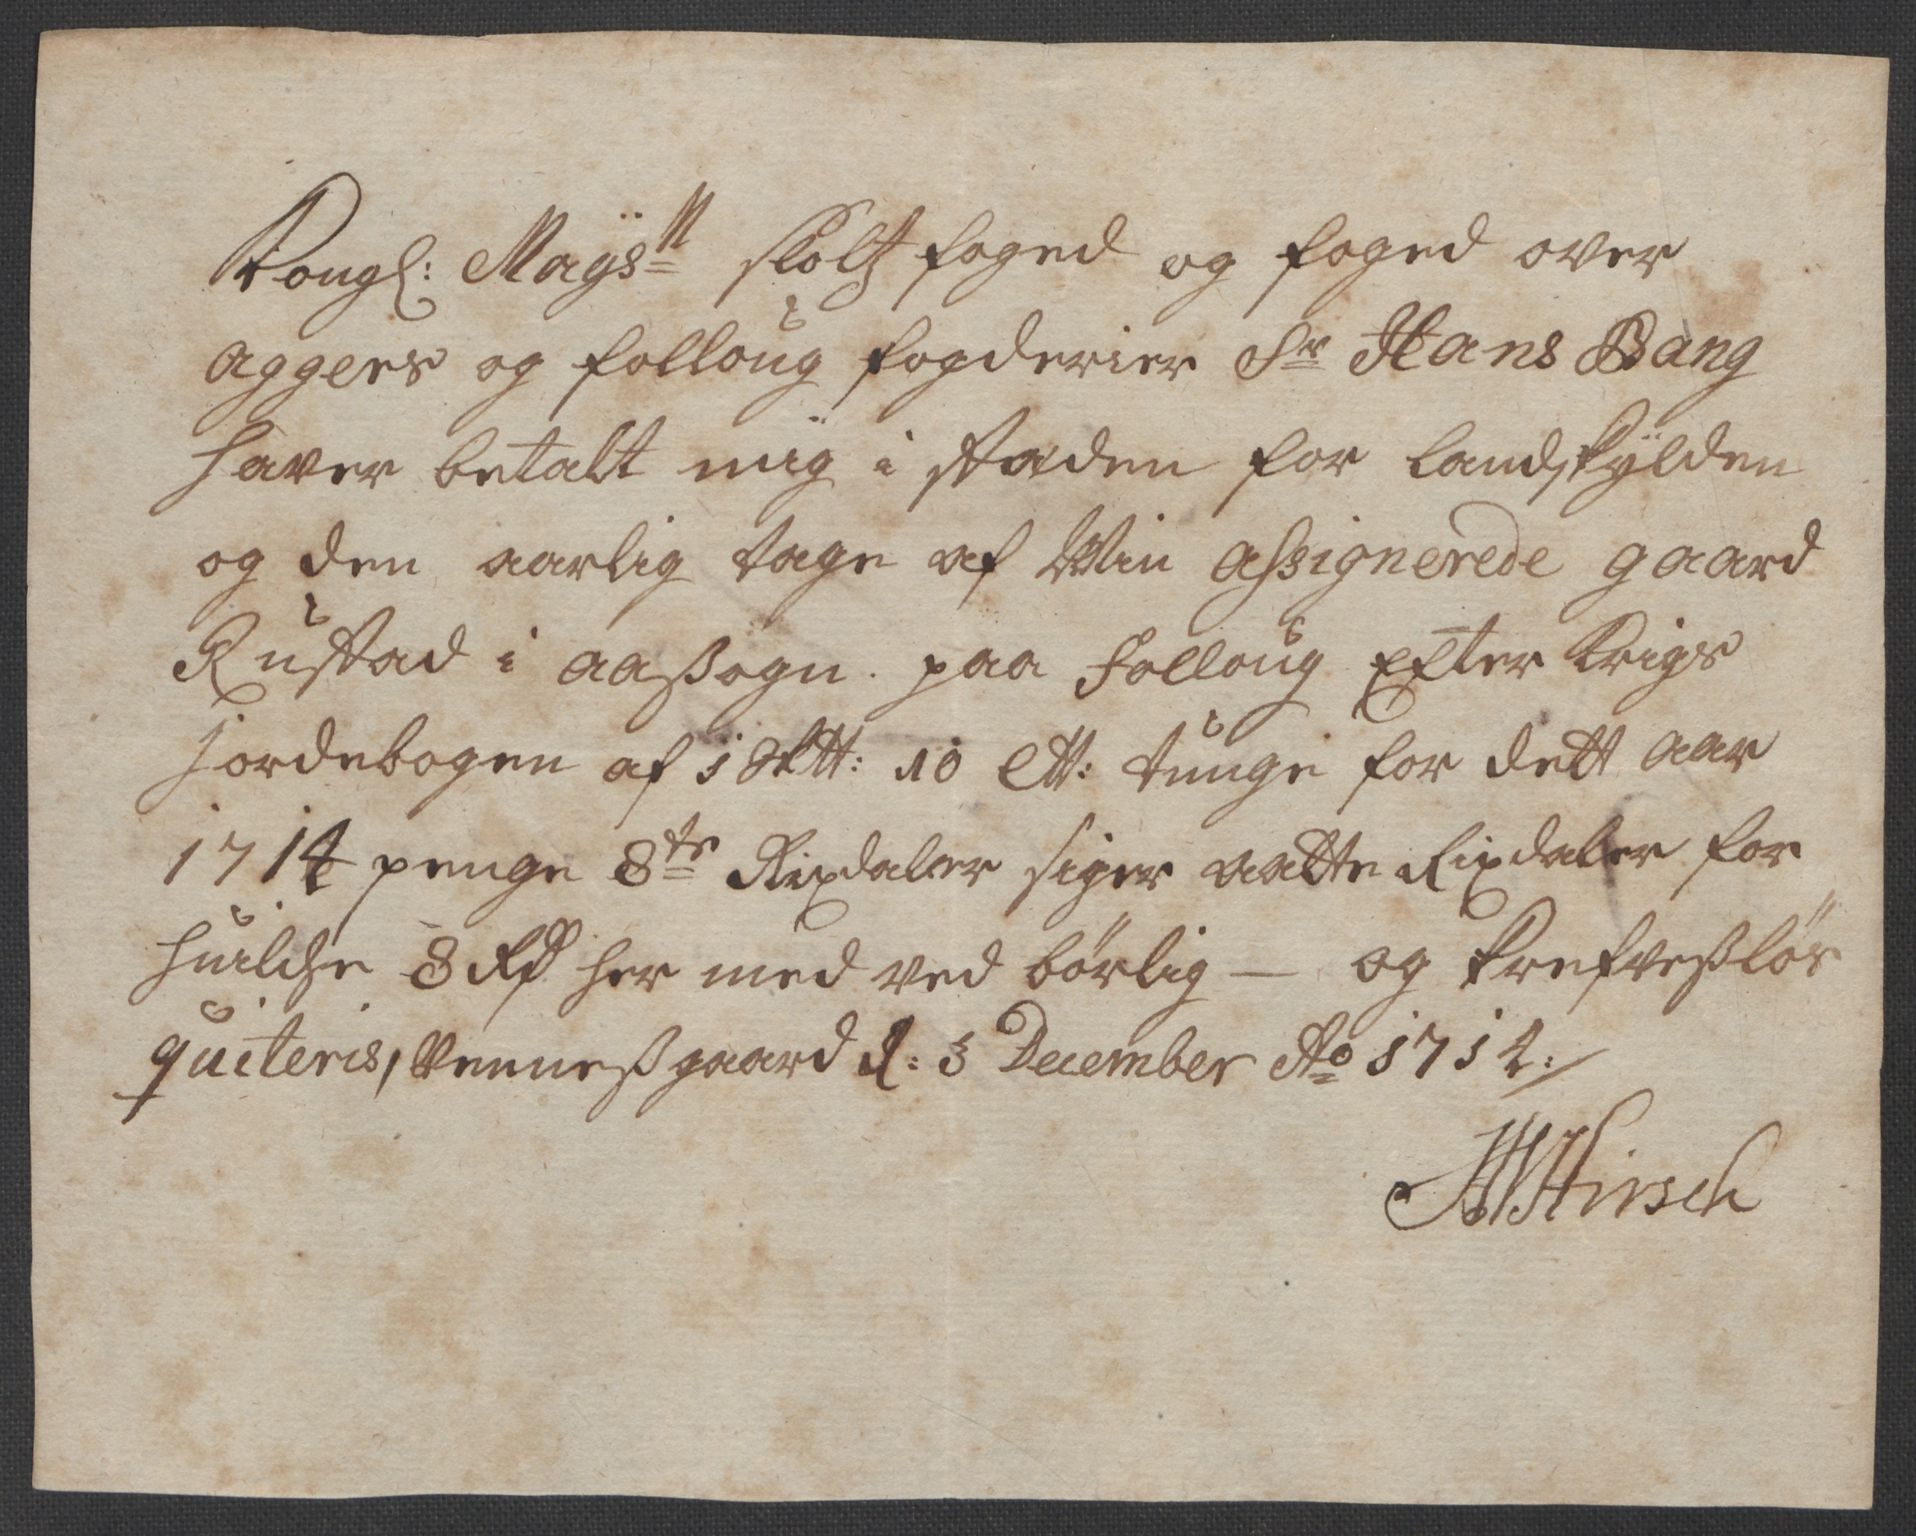 Kongl: Mayst: slotz foged og foged over
aggers og folloug fogderier Sr Hans Bang
haver betalt mig i staden for landskÿlden
og den aarlig tage af Min assignerede gaard
Rustad i aaßogn. paa Folloug Efter Krigs
jordebogen af 1 Sktt: 10 Ltt: tunge for dett aar
1714 penge 8te Rixdaler siger aatte Rixdaler for
huilche 8 Rd her med ved børlig — og krefvesløs
quiteris, Venneßgaard d: 3 December Ao 1714:/
Hirsch